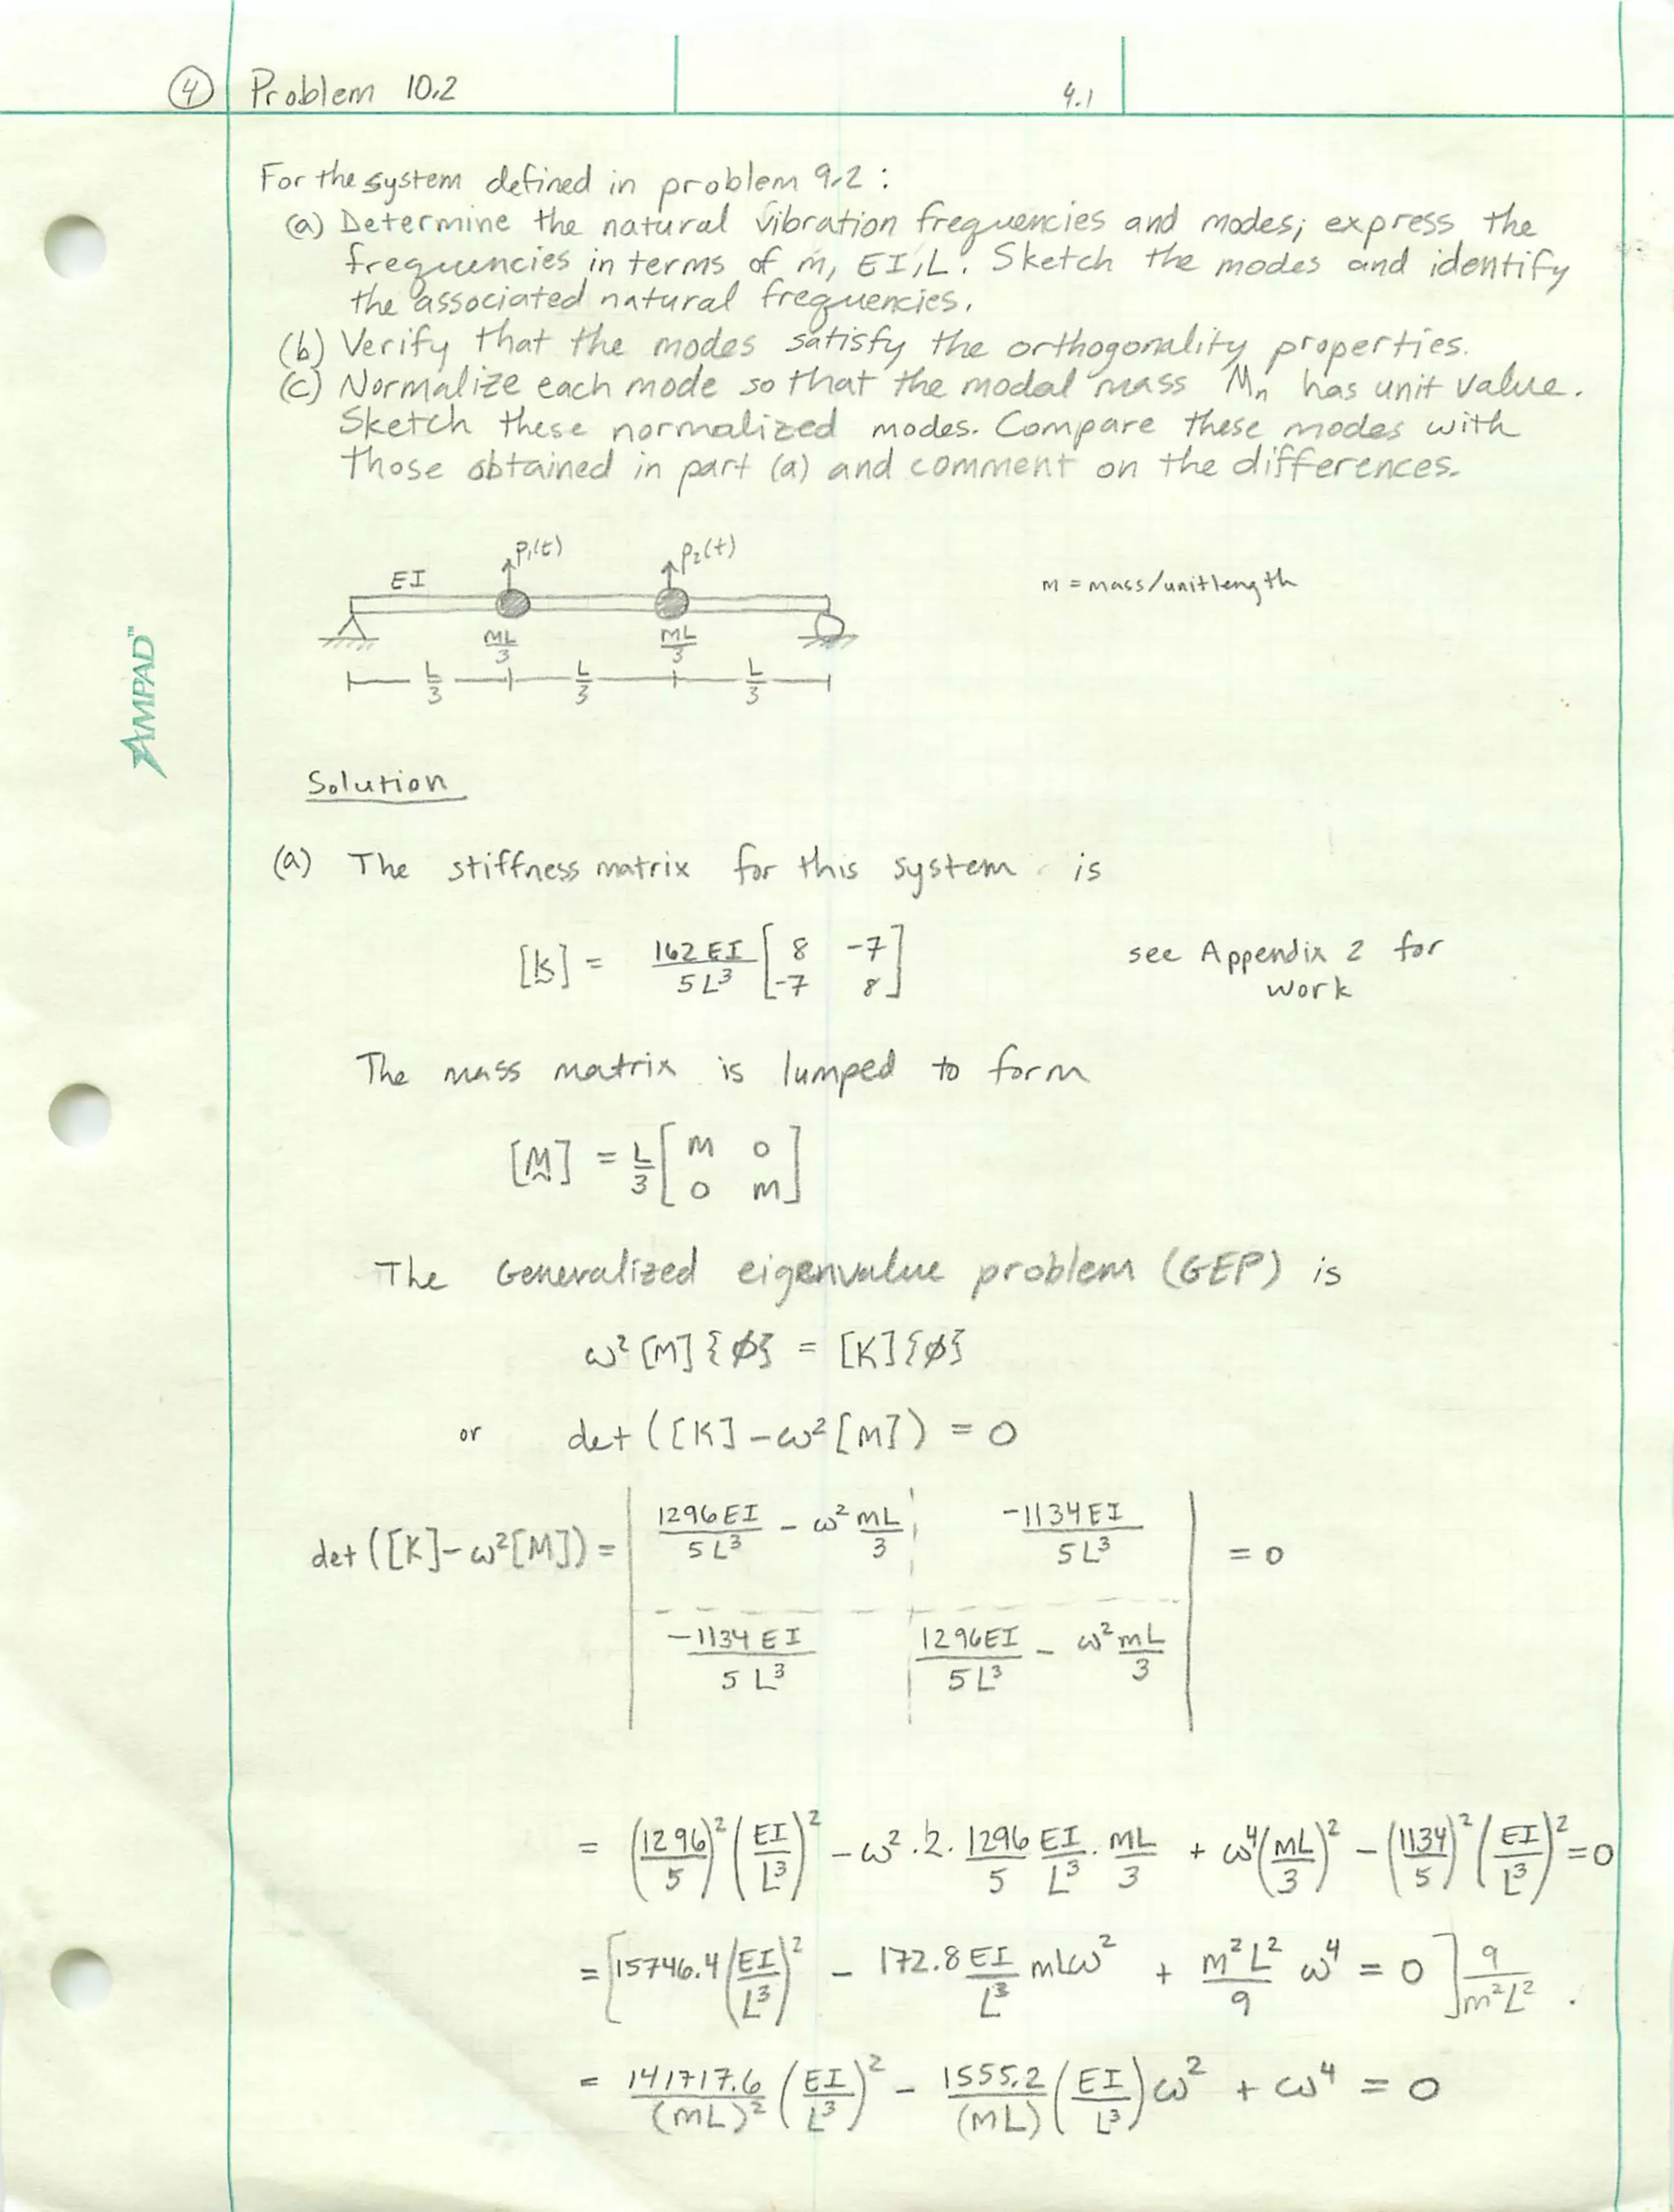 ④ Problem 10.2 4.1
For the system defined in problem 9.2 :
(a) Determine the natural vibration frequencies and modes; express the
frequencies in terms of m, EI, L. Sketch the modes and identify
the associated natural frequencies.
(b) Verify that the modes satisfy the orthogonality properties.
(c) Normalize each mode so that the modal mass Mn has unit value.
Sketch these normalized modes. Compare these modes with
those obtained in part (a) and comment on the differences.
P₁(t) P₂(t)
EI
m = mass/unit length
mL/3 mL/3
L/3 L/3 L/3
AMPAD™
Solution
(a) The stiffness matrix for this system is
[k] = 162 EI / 5L³ [8 -7; -7 8] see Appendix 2 for
work
The mass matrix is lumped to form
[M] = L/3 [m 0; 0 m]
The Generalized eigenvalue problem (GEP) is
ω² [M] {φ} = [K] {φ}
or det ([K] - ω² [M]) = 0
det ([K] - ω²[M]) = | 1296EI/5L³ - ω² mL/3 -1134EI/5L³ | = 0
| -1134EI/5L³ 1296EI/5L³ - ω² mL/3 |
= (1296/5)² (EI/L³)² - ω² · 2 · 1296/5 EI/L³ · mL/3 + ω⁴ (mL/3)² - (1134/5)² (EI/L³)² = 0
= [15746.4 (EI/L³)² - 172.8 EI/L³ mLω² + m²L²/9 ω⁴ = 0] 9/m²L² .
= 141717.6/(mL)² (EI/L³)² - 1555.2/(mL) (EI/L³) ω² + ω⁴ = 0